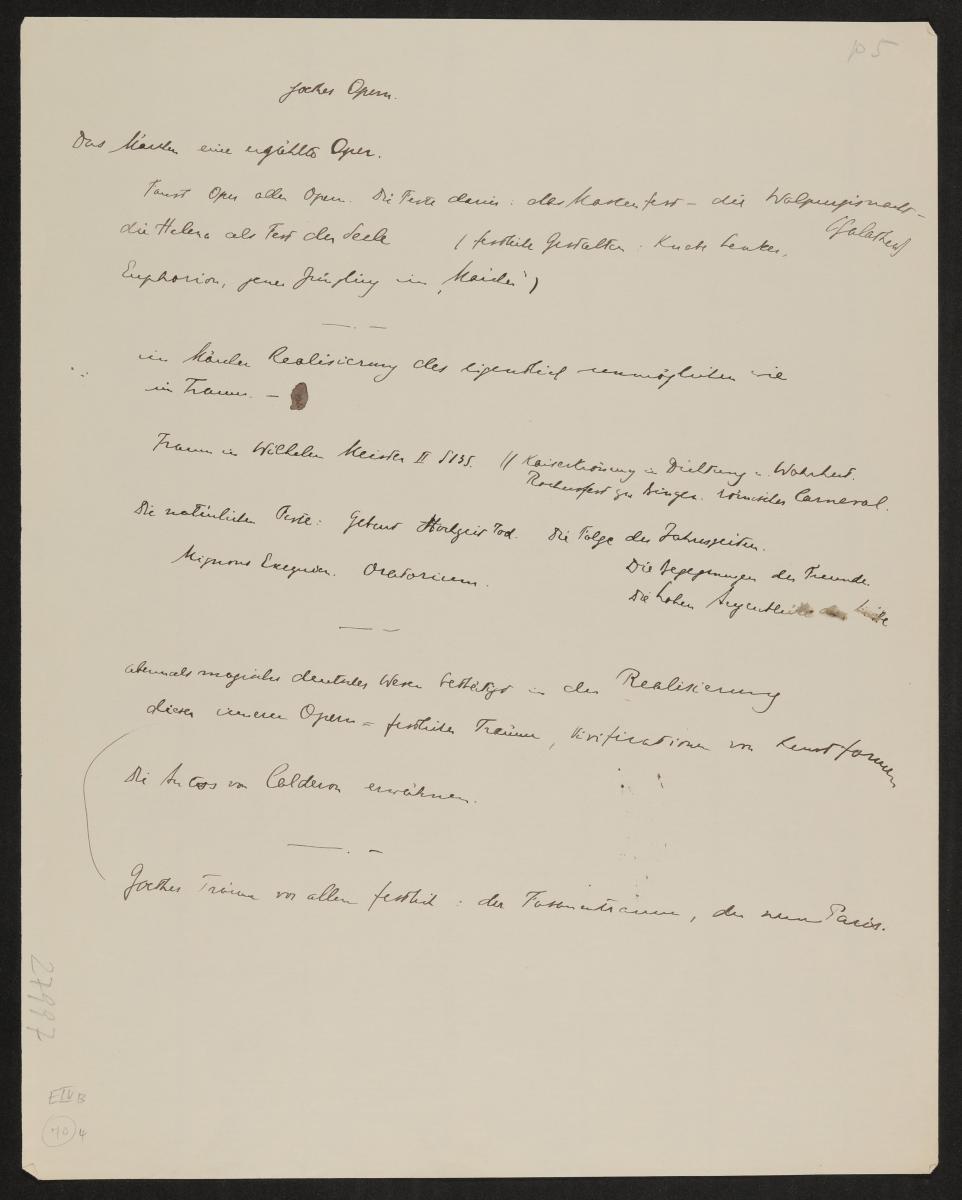 p 5
Goethes Opern.
Das Märchen eine erzählte Oper.
Faust Oper aller Opern. Die Feste darin: das Maskenfest – die Walpurgisnacht –
(Galathea)
die Helena als Fest der Seele (festliche Gestalten: Knabe Lenker,
Euphorion, jener Jüngling im „Märchen")
im Märchen Realisierung des eigentlich unmöglichen wie
im Traum. –
Traum in Wilhelm Meister II S 135. // Kaiserkrönung in Dichtung u. Wahrheit.
Rochusfest zu Bingen. römischer Carneval.
Die natürlichen Feste: Geburt Hochzeit Tod. Die Folge der Jahreszeiten.
Mignons Exequien. Oratorium. Die Begegnungen der Freunde.
Die hohen Augenblicke der Liebe
abermals magisches deutsches Wesen bestätigt in der Realisierung
dieser inneren Opern = festlichen Träume, Vivificationen von Kunstformen
Die Autos von Calderon erwähnen.
Goethes Träume vor allem festlich: der Fasanentraum, der neue Paris.
27997
E IV B
70 4